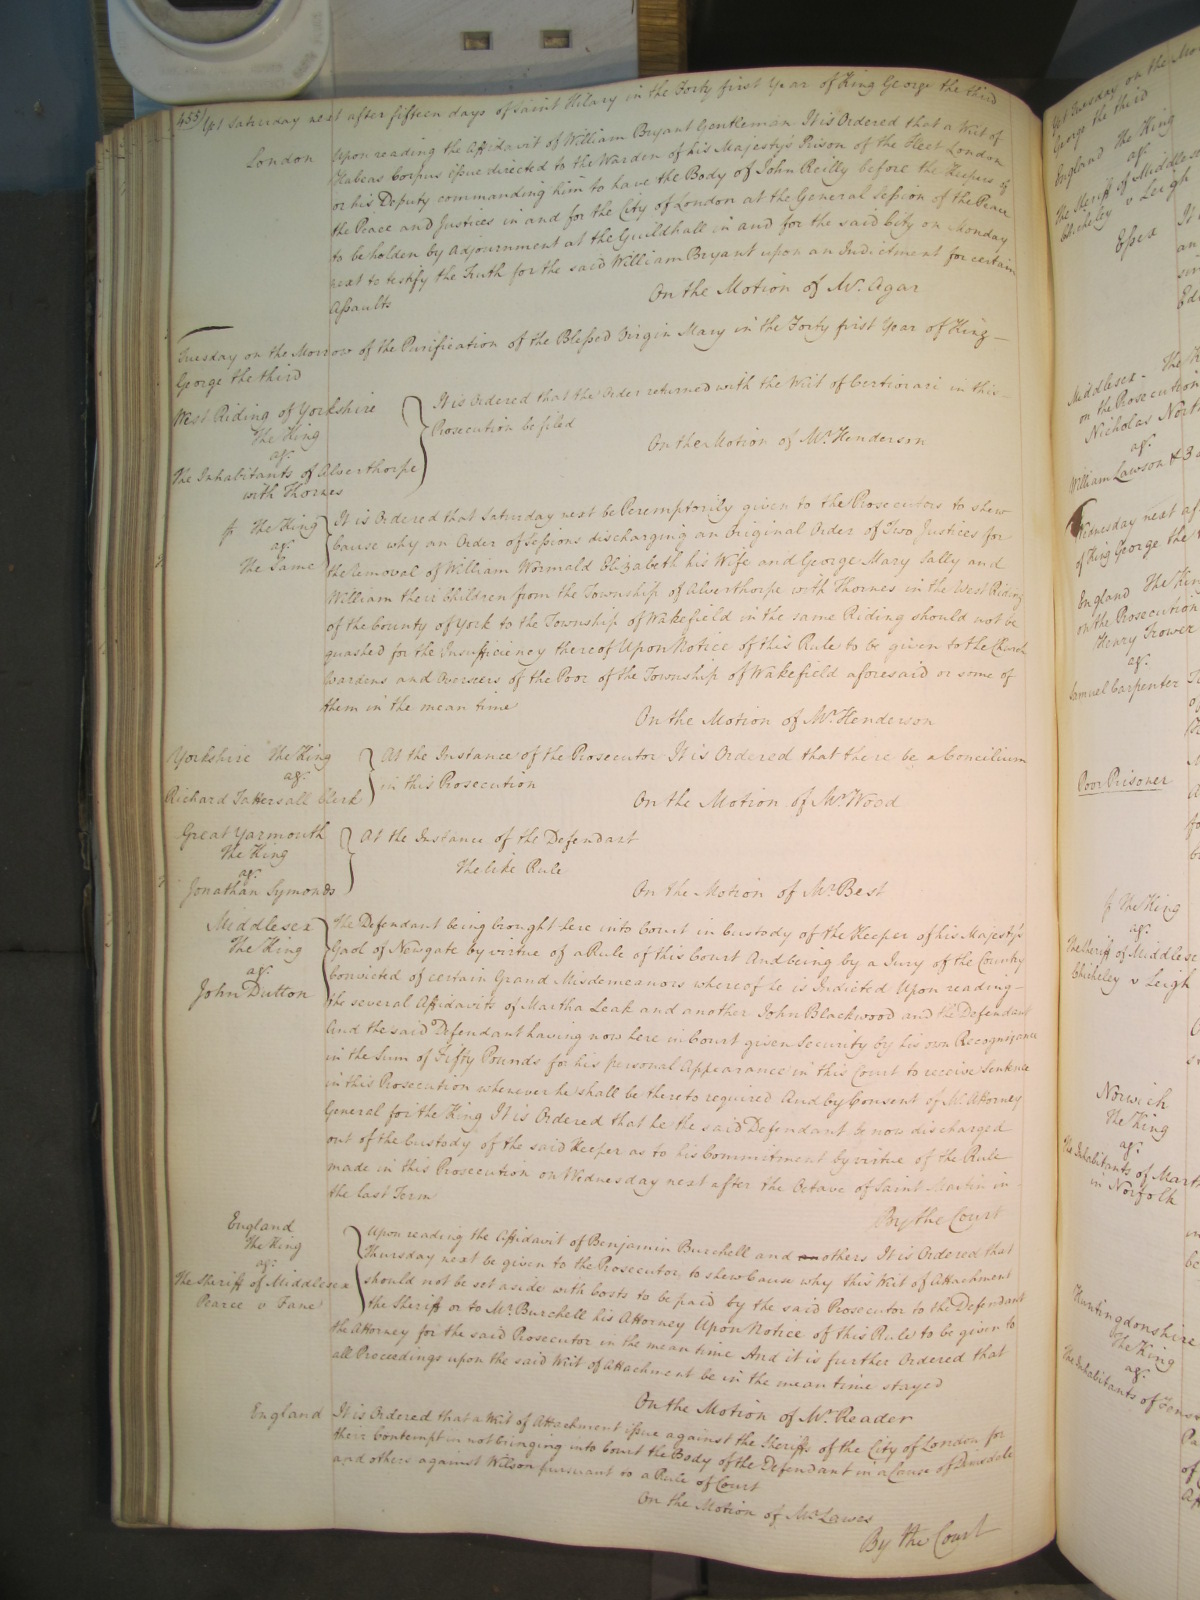 455) Yet Saturday next after fifteen days of Saint Hilary in the Forty first Year of King George the third
London
Upon reading the Affidavit of William Bryant Gentleman It is Ordered that a Writ of
Habeas Corpus issue directed to the Warden of his Majesty's Prison of the Fleet London
or his Deputy commanding him to have the Body of John Reilly before the Keepers of
the Peace and Justices in and for the City of London at the General Session of the Peace
to be holden by Adjournment at the Guildhall in and for the said City on Monday
next to testify the Truth for the said William Bryant upon an Indictment for certain
Assaults
On the Motion of Mr. Agar
Tuesday on the Morrow of the Purification of the Blessed Virgin Mary in the Forty first Year of King
George the third
West Riding of Yorkshire
The King
agt.
The Inhabitants of Alverthorpe
with Thornes
It is Ordered that the Order returned with the Writ of Certiorari in this
Prosecution be filed
On the Motion of Mr. Henderson
The King
agt.
The Same
It is Ordered that Saturday next be Peremptorily given to the Prosecutors to shew
Cause why an Order of Sessions discharging an Original Order of Two Justices for
the Removal of William Wormald Elizabeth his Wife and George Mary Sally and
William their Children from the Township of Alverthorpe with Thornes in the West Riding
of the County of York to the Township of Wakefield in the same Riding should not be
quashed for the Insufficiency thereof Upon Notice of this Rule to be given to the Church
Wardens and Overseers of the Poor of the Township of Wakefield aforesaid or some of
them in the mean time
On the Motion of Mr. Henderson
Yorkshire The King
agt.
Richard Tattersall Clerk
At the Instance of the Prosecutor It is Ordered that there be a Concilium
in this Prosecution
On the Motion of Mr. Wood
Great Yarmouth
The King
agt.
Jonathan Symonds
At the Instance of the Defendant
The like Rule
On the Motion of Mr. Best
Middlesex
The King
agt.
John Dutton
The Defendant being brought here into Court in Custody of the Keeper of his Majesty's
Gaol of Newgate by virtue of a Rule of this Court And being by a Jury of the Country
Convicted of certain Grand Misdemeanors whereof he is Indicted Upon reading
the several Affidavits of Martha Leak and another John Blackwood and the Defendant
And the said Defendant having now here in Court given Security by his own Recognizance
in the Sum of Fifty Pounds for his personal Appearance in this Court to receive Sentence
in this Prosecution whenever he shall be thereto required And by Consent of Mr. Attorney
General for the King It is Ordered that he the said Defendant be now discharged
out of the Custody of the said Keeper as to his Commitment by virtue of the Rule
made in this Prosecution on Wednesday next after the Octave of Saint Martin in
the last Term
By the Court
England
The King
agt.
The Sheriff of Middlesex
Pearce v Fane
Upon reading the Affidavit of Benjamin Burchell and others It is Ordered that
Thursday next be given to the Prosecutor to shew Cause why this Writ of Attachment
should not be set aside with Costs to be paid by the said Prosecutor to the Defendant
the Sheriff or to Mr. Burchell his Attorney Upon Notice of this Rule to be given to
the Attorney for the said Prosecutor in the mean time And it is further Ordered that
all Proceedings upon the said Writ of Attachment be in the mean time stayed
On the Motion of Mr. Reader
England
It is Ordered that a Writ of Attachment issue against the Sheriffs of the City of London for
their Contempt in not bringing into Court the Body of the Defendant in a Cause of
and others against Wilson pursuant to a Rule of Court
On the Motion of Mr. Lawes
By the Court
Yet Tuesday on the
George the third
England The King
agt.
The Sheriff of Middlesex
Chicheley v Leigh
Essex
Middlesex
on the Prosecution
Nicholas
agt.
William Lawson & 3
Wednesday next
of King George the
England The King
on the Prosecution
Henry Trower
agt.
Samuel Carpenter
Poor Prisoner
The King
agt.
The Sheriff of Middlesex
Chicheley v Leigh
Norwich
The King
agt.
The Inhabitants of
in Norfolk
Huntingdonshire
The King
agt.
The Inhabitants of